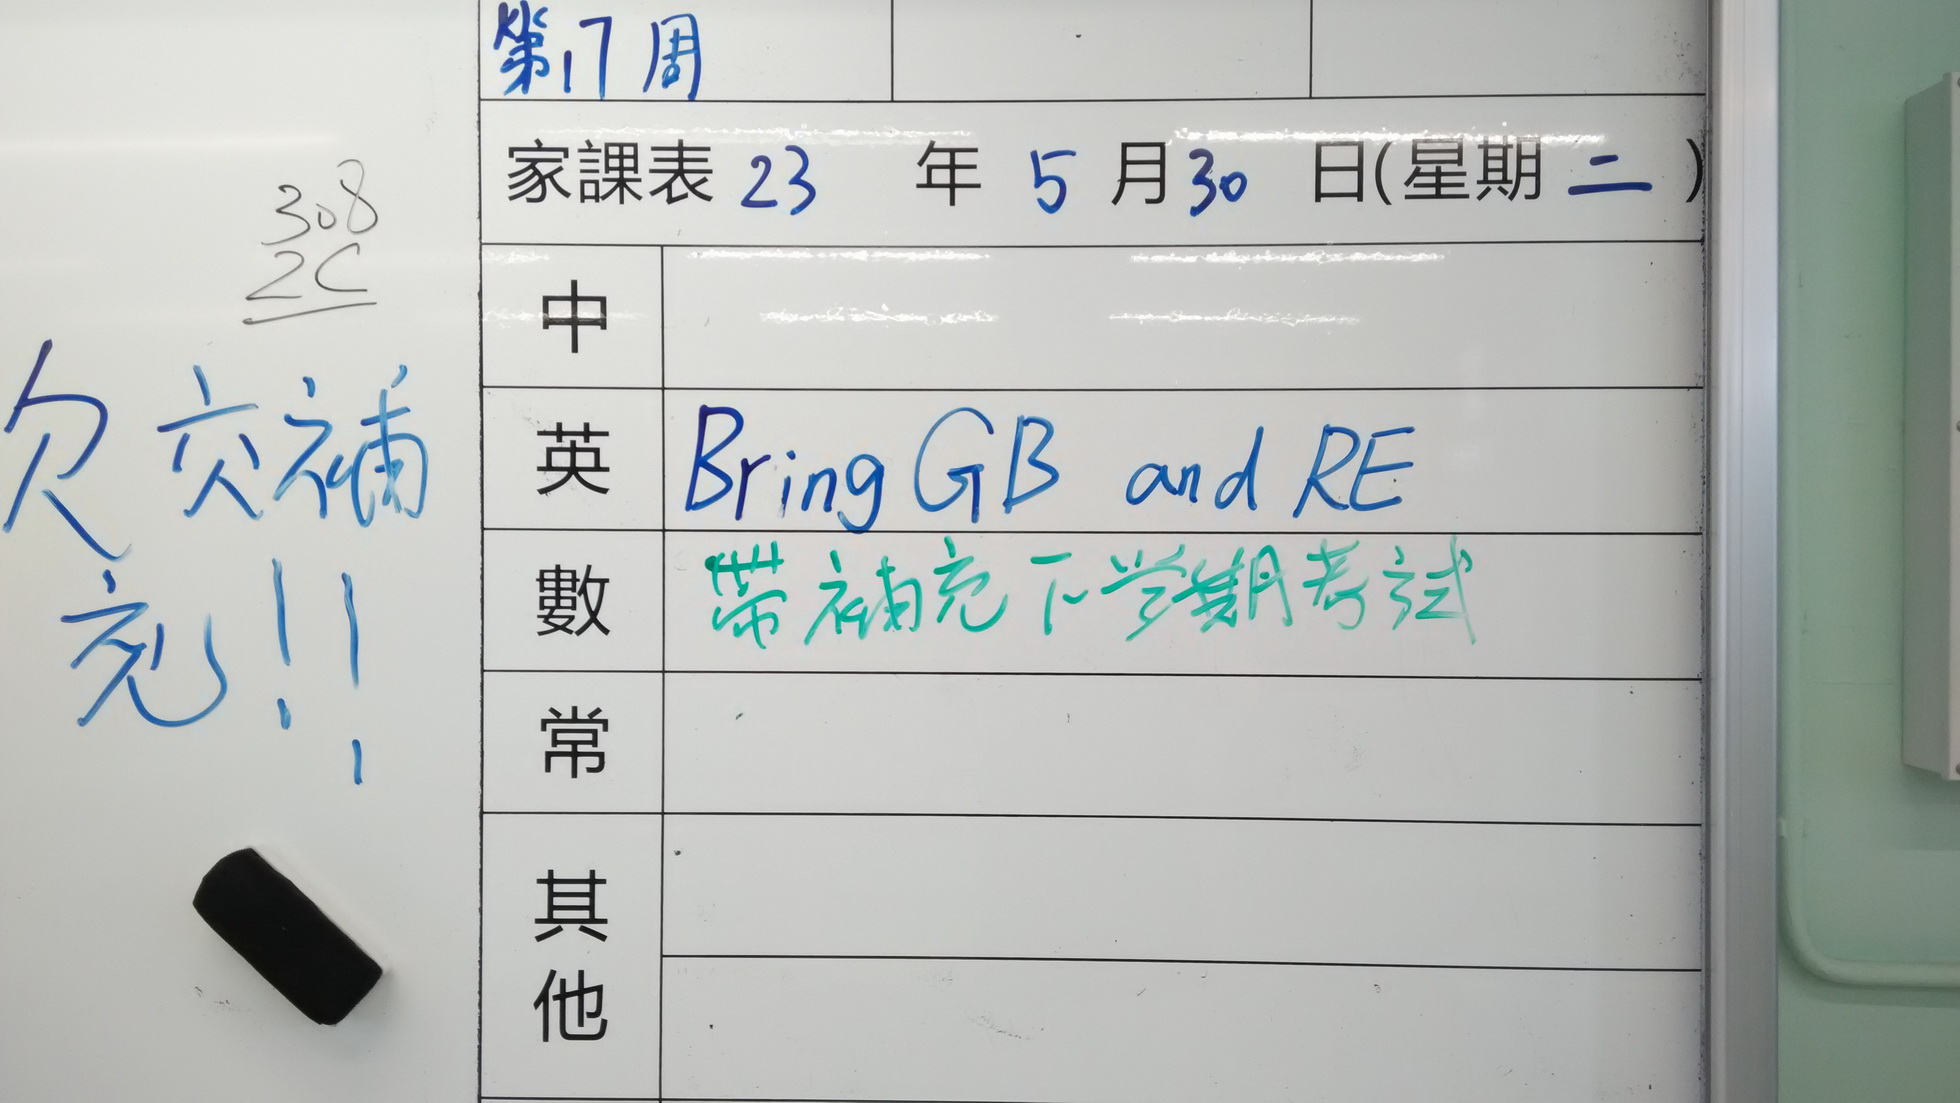 第17周
家課表 23 年 5 月 30 日(星期 二 )
308
2C
欠交補
充!!
中
英 Bring GB and RE
數 带補充下学期考試
常
其
他